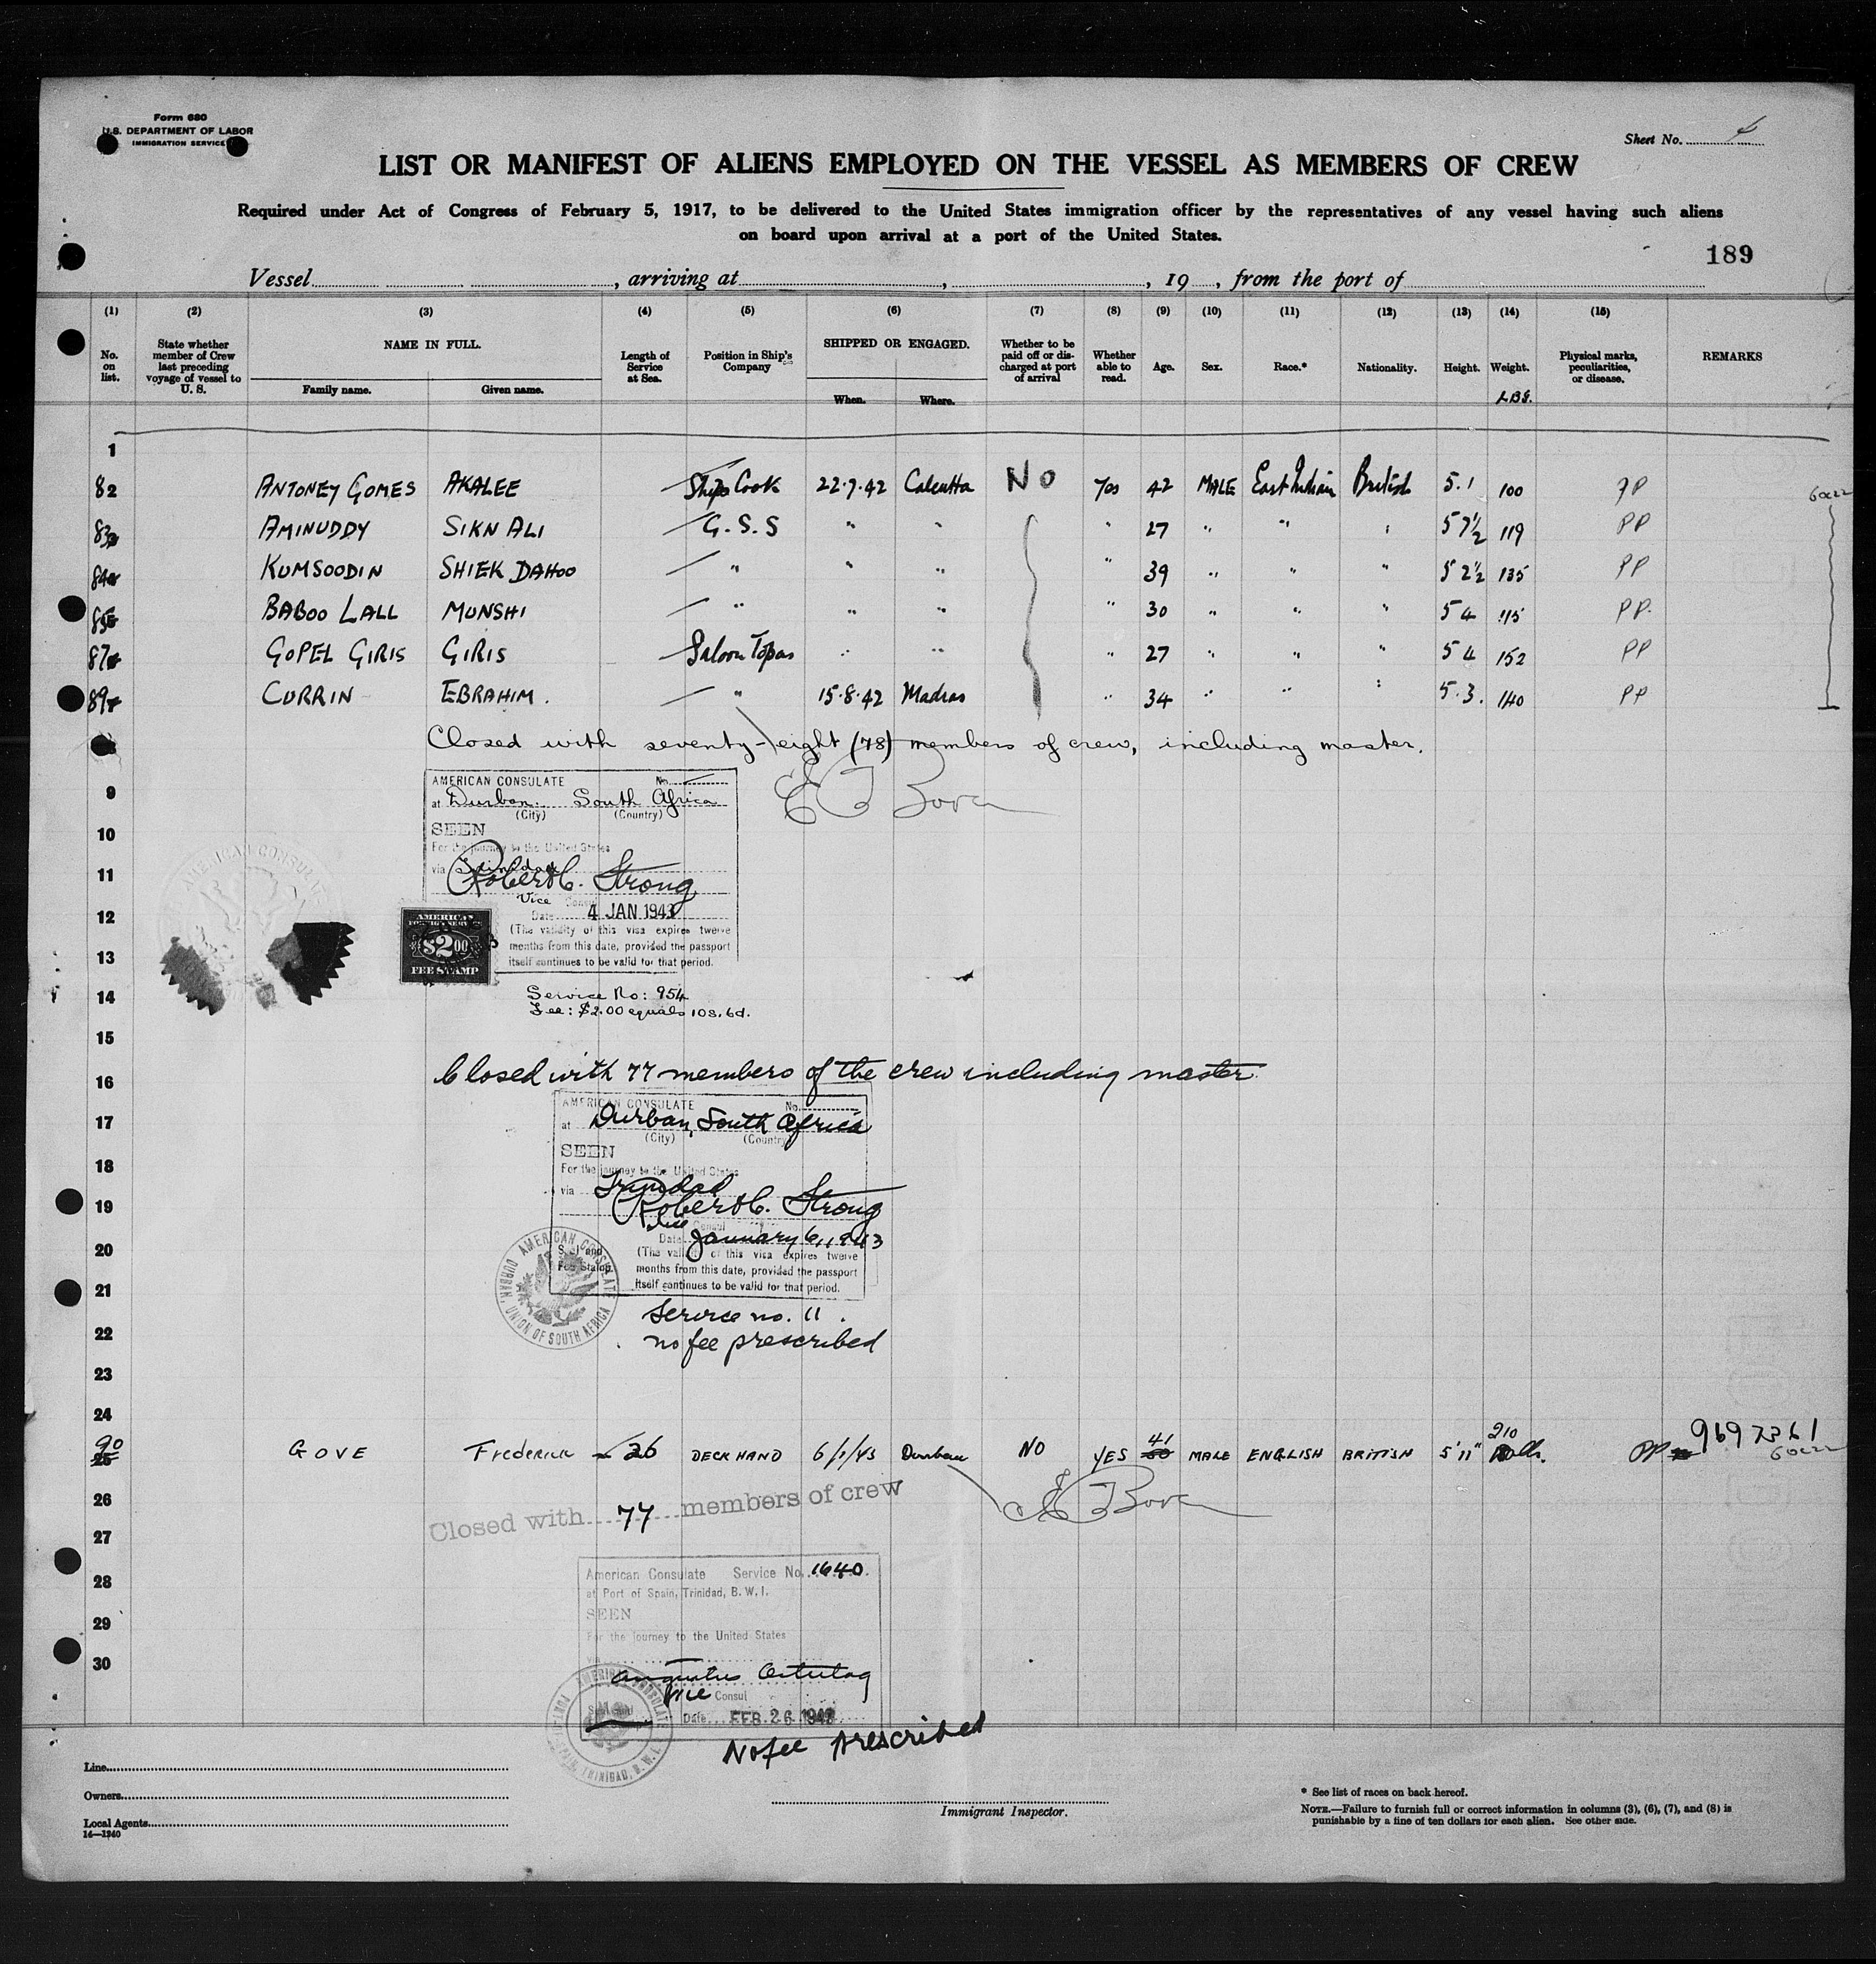 Form 680
U.S. DEPARTMENT OF LABOR
IMMIGRATION SERVICE
Sheet No.
LIST OR MANIFEST OF ALIENS EMPLOYED ON THE VESSEL AS MEMBERS OF CREW
Required under Act of Congress of February 5, 1917, to be delivered to the United States immigration officer by the representatives of any vessel having such aliens
on board upon arrival at a port of the United States.
189
Vessel , arriving at , , 19 , from the port of
(1) (2) (3) (4) (5) (6) (7) (8) (9) (10) (11) (12) (13) (14) (15)
No. on list. State whether member of Crew last preceding voyage of vessel to U. S. NAME IN FULL. Family name. Given name. Length of Service at Sea. Position in Ship's Company SHIPPED OR ENGAGED. When. Where. Whether to be paid off or discharged at port of arrival Whether able to read. Age. Sex. Race.* Nationality. Height. Weight. LBS. Physical marks, peculiarities, or disease. REMARKS
1
82 ANTONEY GOMES AKALEE Ships Cook 22.7.42 Calcutta NO Yes 42 MALE East Indian British 5.1 100 PP
83 AMINUDDY SIKN ALI G.S.S " " " 27 " " " 5 7½ 119 PP
84 KUMSOODIN SHIEK DAHOO " " " " 39 " " " 5 2½ 135 PP
85 BABOO LALL MUNSHI " " " " 30 " " " 5 4 115 PP.
87 GOPEL GIRIS GIRIS Saloon Topas " " " 27 " " " 5 4 152 PP
89 CURRIN EBRAHIM. " 15.8.42 Madras " 34 " " " 5.3. 140 PP
Closed with seventy-eight (78) members of crew, including master.
AMERICAN CONSULATE No.
at Durban South Africa
(City) (Country)
SEEN
For the journey to the United States
via Trinidad
Robert C. Strong
Vice Consul
Date 4 JAN 1943
(The validity of this visa expires twelve
months from this date, provided the passport
itself continues to be valid for that period.
AMERICAN CONSULATE
AMERICAN
FOREIGN SERVICE
$2.00
FEE STAMP
9
10
11
12
13
14
Service No: 954
Fee: $2.00 equals 10s.6d.
15
16
Closed with 77 members of the crew including master.
17
AMERICAN CONSULATE No.
at Durban, South Africa
(City) (Country)
18
SEEN
For the journey to the United States
via Trinidad
19
Robert C. Strong
Vice Consul
20
Date January 6, 1943
(The validity of this visa expires twelve
months from this date, provided the passport
itself continues to be valid for that period.
Seal and
Fee Stamp
AMERICAN CONSULATE DURBAN, UNION OF SOUTH AFRICA
21
Service no. 11.
22
no fee prescribed
23
24
90 GOVE Frederick 26 DECK HAND 6/1/43 Durban NO YES 41 MALE ENGLISH BRITISH 5'11" 210 PP 9697361
26
Closed with 77 members of crew
27
28
American Consulate Service No. 1640.
at Port of Spain, Trinidad, B. W. I.
SEEN
29
For the journey to the United States
via
30
Vice Consul
Date FEB 26 1943
No fee prescribed
Line
Owners
Local Agents
14—1240
Immigrant Inspector.
* See list of races on back hereof.
NOTE.—Failure to furnish full or correct information in columns (3), (6), (7), and (8) is
punishable by a fine of ten dollars for each alien. See other side.